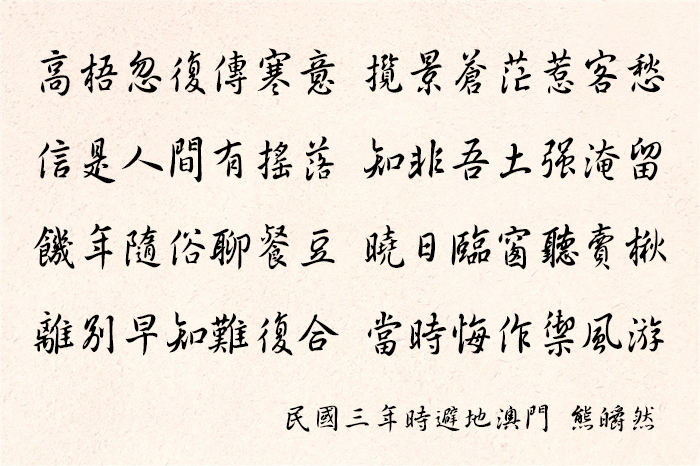 高梧忽復傳寒意 攬景蒼茫惹客愁
信是人間有搖落 知非吾土强淹留
饑年隨俗聊餐豆 曉日臨窗聽賣楸
離別早知難復合 當時悔作禦風游
民國三年時避地澳門 熊皭然